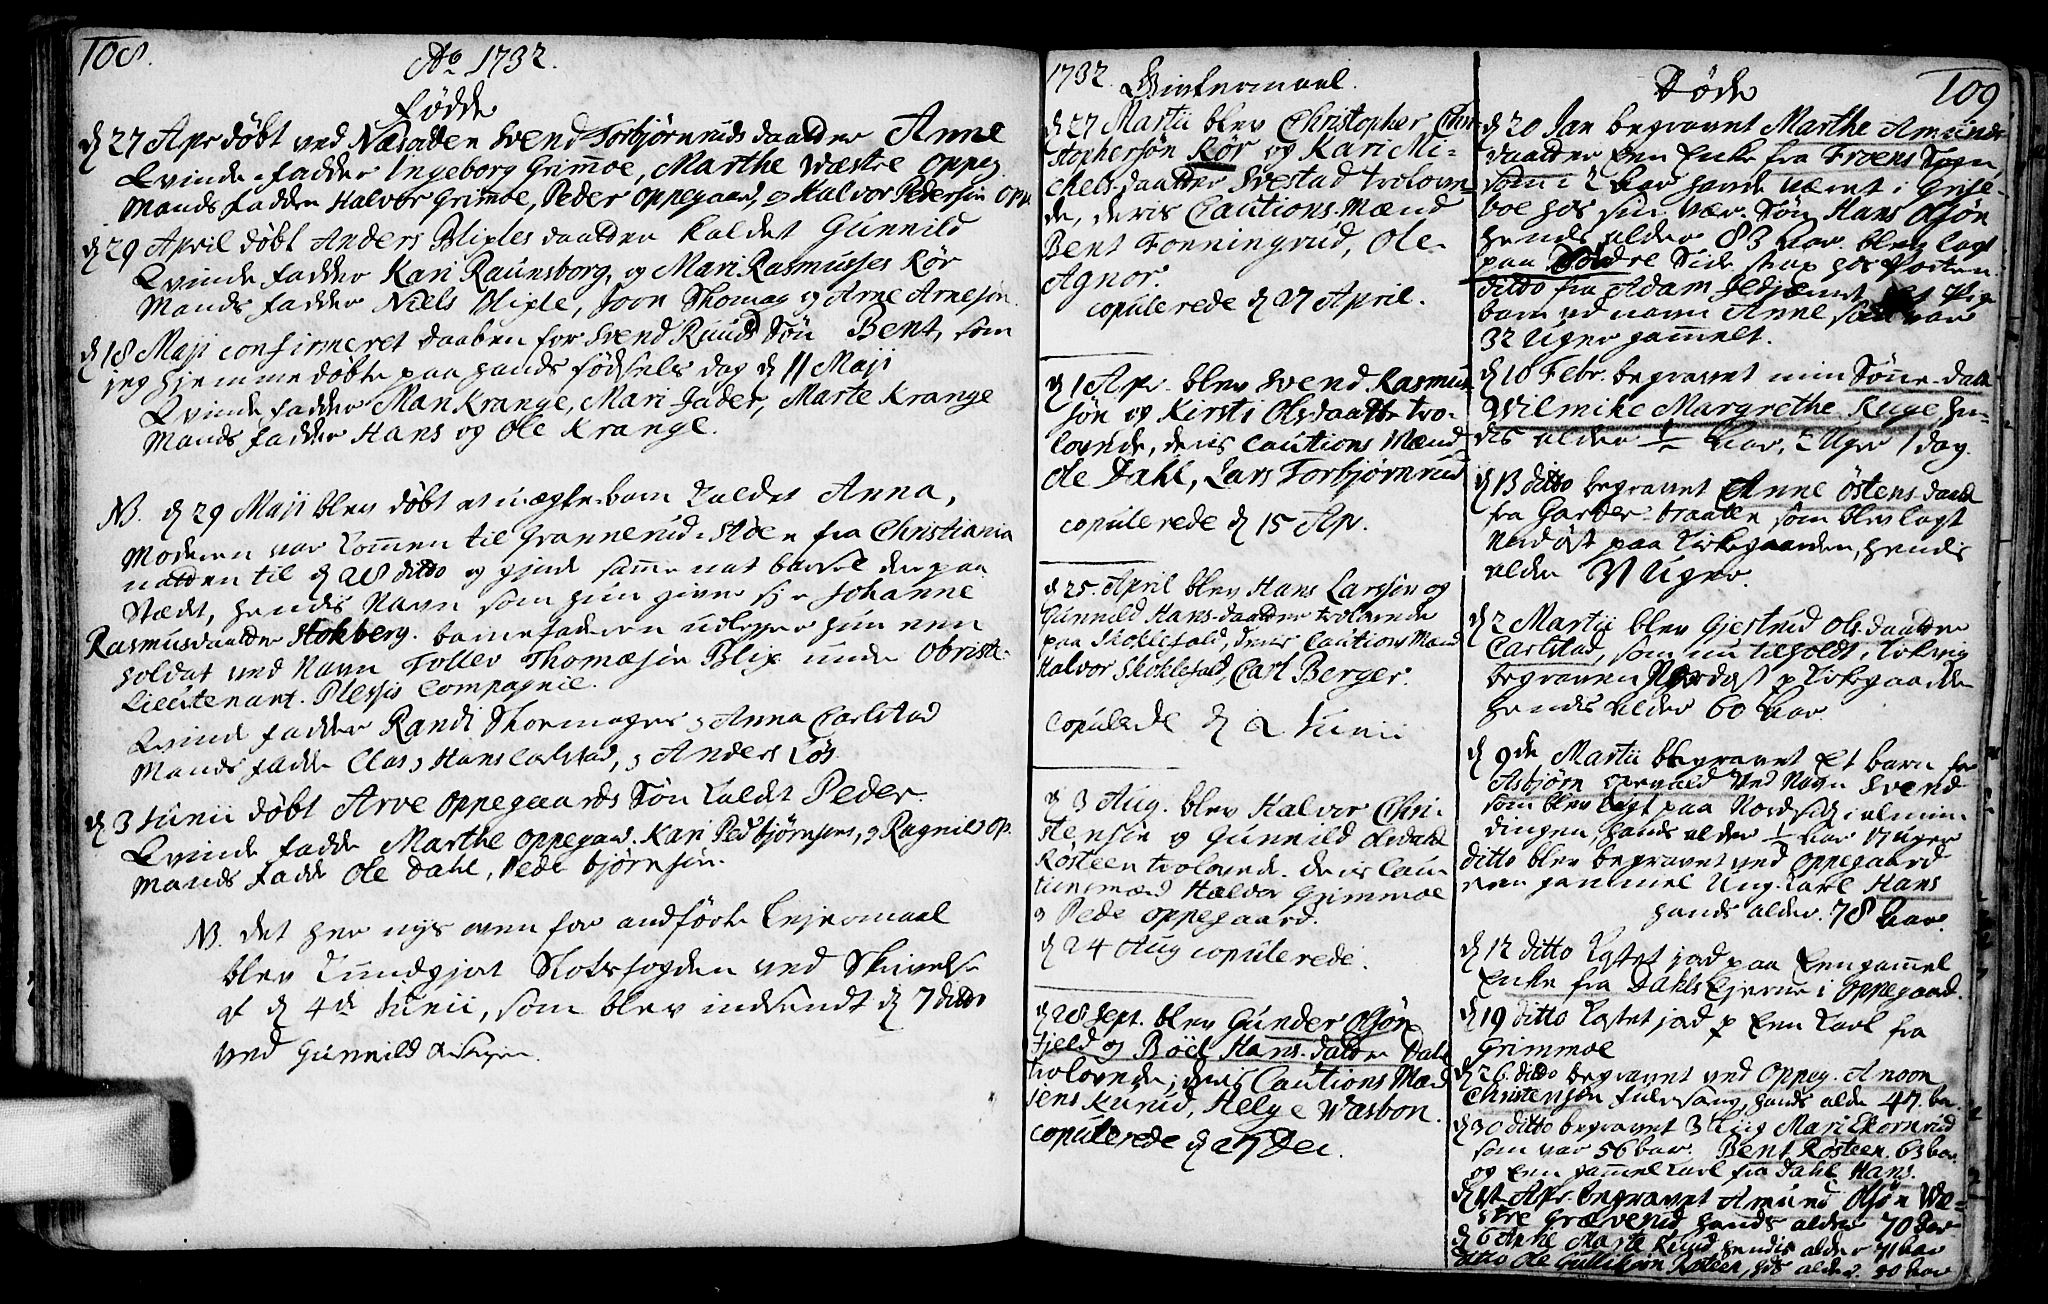 108.
Ao 1732.
Fødde
d 27 Apr døbt ved Næsodden Svend Torbjørnruds daatter Anne
Qvinde-fadder Ingeborg Grimoe, Marthe Wæstre Oppeg
Mands fadder Halvor Grimoe, Peder Oppegaard, og Halvor Pedersøn Opp
d 29 April døbt Anders Blixles daatter kaldet Gunnild
Qvinde fadder Kari Raunsborg, og Mari Rasmusses Rør
Mands fadder Niels Blixle, Joen og Arne Arnesøn.
d 18 Maji confirmeret daaben for Svend Ruuds Søn Bent, som
jeg hjemme døbte paa hands fødsels dag d 11 Maji
Qvinde fadder Mari Krange, Mari Jader, Marte Krange
Mands fadder Hans og Ole Krange.
NB. d 29 Maji blev døbt et uægte-barn kaldet Anna,
Moderen var kommen til Grannerud-støe fra Christiania
natten til d 28 ditto og giorde samme nat barsel der paa
Stædet, hendis Navn som hun giver sig Johanne
Rasmusdaatter Stokberg. barnefaderen udlegger hun een
Soldat ved Navn Tollev Thomæsøn Blix under Obrist-
Lieutenant. Plessis Compagnie.
Qvinde fadder Randi Skoemager, og Anna Carlstad
Mands fadde Clas og Hans Carlstad, og Anders Løs.
d 3 Junii døbt Arve Oppegaards Søn kaldt Peder.
Qvinde fadde Marthe Oppegaard. Kari Ped bjørnsens, og Ragnild Op.
Mands fadde Ole Dahl, Pede bjørnsøn.
NB. det her nys oven for andførte Lejermaal
blev kundgjort Slotsfogden ved Skrivelse
af d 4de Junii, som blev indsendt d 7 ditto
ved Gunnild
1732. Ægtermaal.
d 27 Martii blev Christopher Chri-
stophersøn Rør og Kari Mi-
chels-daatter Svestad trolove-
de, deris Cautions-Mænd
Bent Fonningrud, Ole
Agnor.
copulerede d 27 April.
d 1 Apr. blev Svend Rasmus-
søn og Kirsti Olsdaatter tro-
lovede, deris Cautions Mænd
Ole Dahl, Lars Torbjørnrud
copulerede d 15 Apr.
d 25. April blev Hans Larssøn og
Gunnild Hans-daatter trolovede
paa Skoklefald, deris Cautions Mænd
Halvor Skoklefald, Carl Berger.
Copulerede d 2 Junii
d 3 Aug. blev Halvor Chri-
stensøn og Gunnild Olsdaatt
Røsteen trolovede. deris Cau-
tionsmænd Halvor Grimmoe
og Pede Oppegaard.
d 24 Aug copulerede.
d 28 Sept. blev Gunder Olsøn
Fjeld og Boel Hans-daatter Dahl
trolovede, deris Cautions Mæd
Jens Kurud, Helge Wasbon.
copulerede d 27 Dec.
109
Døde
d 20 Jan begravet Marthe Amunds-
daatter Een Enke fra Froens Sogn
som i 2 Aar hande været i Grise-
boe hos sin vær-Søn Hans Olsøn
hendis alder 83 Aar. blev lagt
paa Søndre Side strax hos
ditto fra Adam et Pige
barn ved navn Anne som var
32 Uger gammelt.
d 10 Febr. begravet min Sønne-datt
Wilmike Margrethe Ruge hen-
dis alder 1/2 Aar, 2 Uger 1 dag.
d 13 ditto begravet Anne Østens daatt
fra Garder-braaten som blev lagt
Nordøst paa Kirkegaarden, hendis
alder Uger.
d 2 Martii blev Gjertrud Ols-daatter
Carlstad, som nu tilholdt i
begraven Nordøst p Kirkegaarden
hendis alder 60 Aar.
d 9de Martii begravet Et barn for
Asbjørn ved Navn Svend
som blev lagt paa Nordsid i almin-
dingen, hands alder 1/2 Aar 17 Uger
ditto blev begravet ved Oppegaard
een gammel Ung-karl Hans
hands alder. 78 Aar.
d 12 ditto kastet jord paa Een gammel
Enke fra Dahls Ejerne i Oppegaard.
d 19 ditto kastet jord p Een karl fra
Grimmoe
d 26. ditto begravet ved Oppeg. Anoon
Christensøn Fulesang, hands alde 47.
d 30 ditto begravet 3 Liig Mari Ekornrud
som var 56 Aar. Bent Røsteen, 63 Aar
og Een gammel karl fra Dahl Hans.
d 1st Apr. begravet Amund Olsøn Wæ-
stre Græverud hands alder 70 Aar
d 6 Marte Ruud, hendis alder 71 Aar
ditto Ole Gulliksøn Røsteen, hds alder. 30 Aar